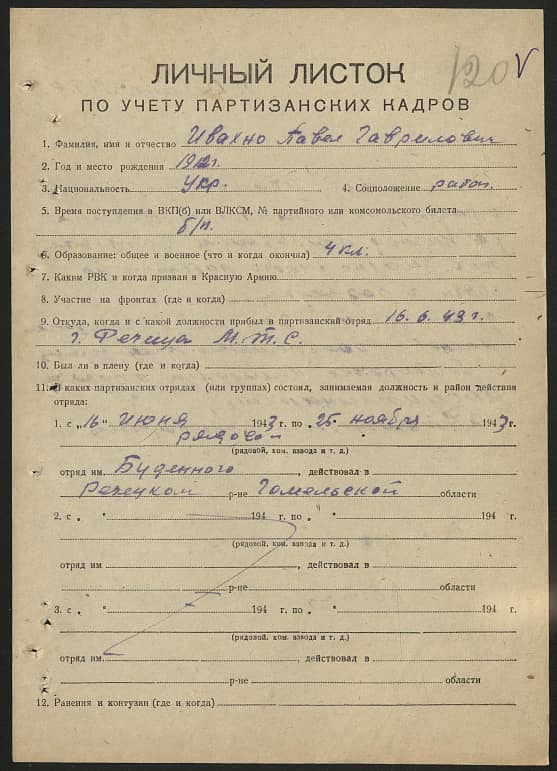 120 V
ЛИЧНЫЙ ЛИСТОК
ПО УЧЕТУ ПАРТИЗАНСКИХ КАДРОВ
1. Фамилия, имя и отчество Ивахно Павел Гаврилович
2. Год и место рождения 1912 г.
3. Национальность Укр. 4. Соцположение рабоч.
5. Время поступления в ВКП(б) или ВЛКСМ, № партийного или комсомольского билета
б/п.
6. Образование: общее и военное (что и когда окончил) 4 кл.
7. Каким РВК и когда призван в Красную Армию
8. Участие на фронтах (где и когда)
9. Откуда, когда и с какой должности прибыл в партизанский отряд 16. 6. 43 г.
г. Речица М.Т.С.
10. Был ли в плену (где и когда)
11. В каких партизанских отрядах (или группах) состоял, занимаемая должность и район действия
отряда:
1. с „16" Июня 1943 г. по „25" ноября 1943 г.
рядовой
(рядовой, ком. взвода и т. д.)
отряд им. Буденного, действовал в
Речецком р-не Гомельской области
2. с „ " 194 г. по „ " 194 г.
(рядовой, ком. взвода и т. д.)
отряд им., действовал в
р-не области
3. с „ " 194 г. по „ " 194 г.
(рядовой, ком. взвода и т. д.)
отряд им., действовал в
р-не области
12. Ранения и контузии (где и когда)